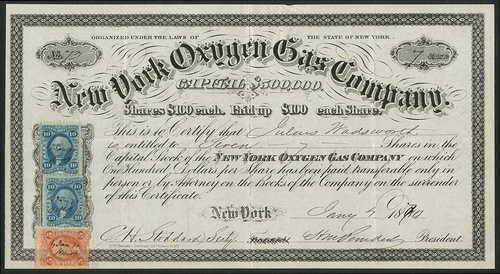 ORGANIZED UNDER THE LAWS OF THE STATE OF NEW YORK.
No. 72
7 Shares
New York Oxygen Gas Company.
CAPITAL $500,000.
Shares $100 each. Paid up $100 each Share.
This is to Certify that Julius Wadsworth
is entitled to Seven 7 Shares in the
Capital Stock of the NEW YORK OXYGEN GAS COMPANY on which
One Hundred Dollars per Share has been paid, transferable only in
person or by Attorney on the Books of the Company on the surrender
of this Certificate.
New York Jany 1870
C.H. Stoddard Secty. President.
10 10
10 10